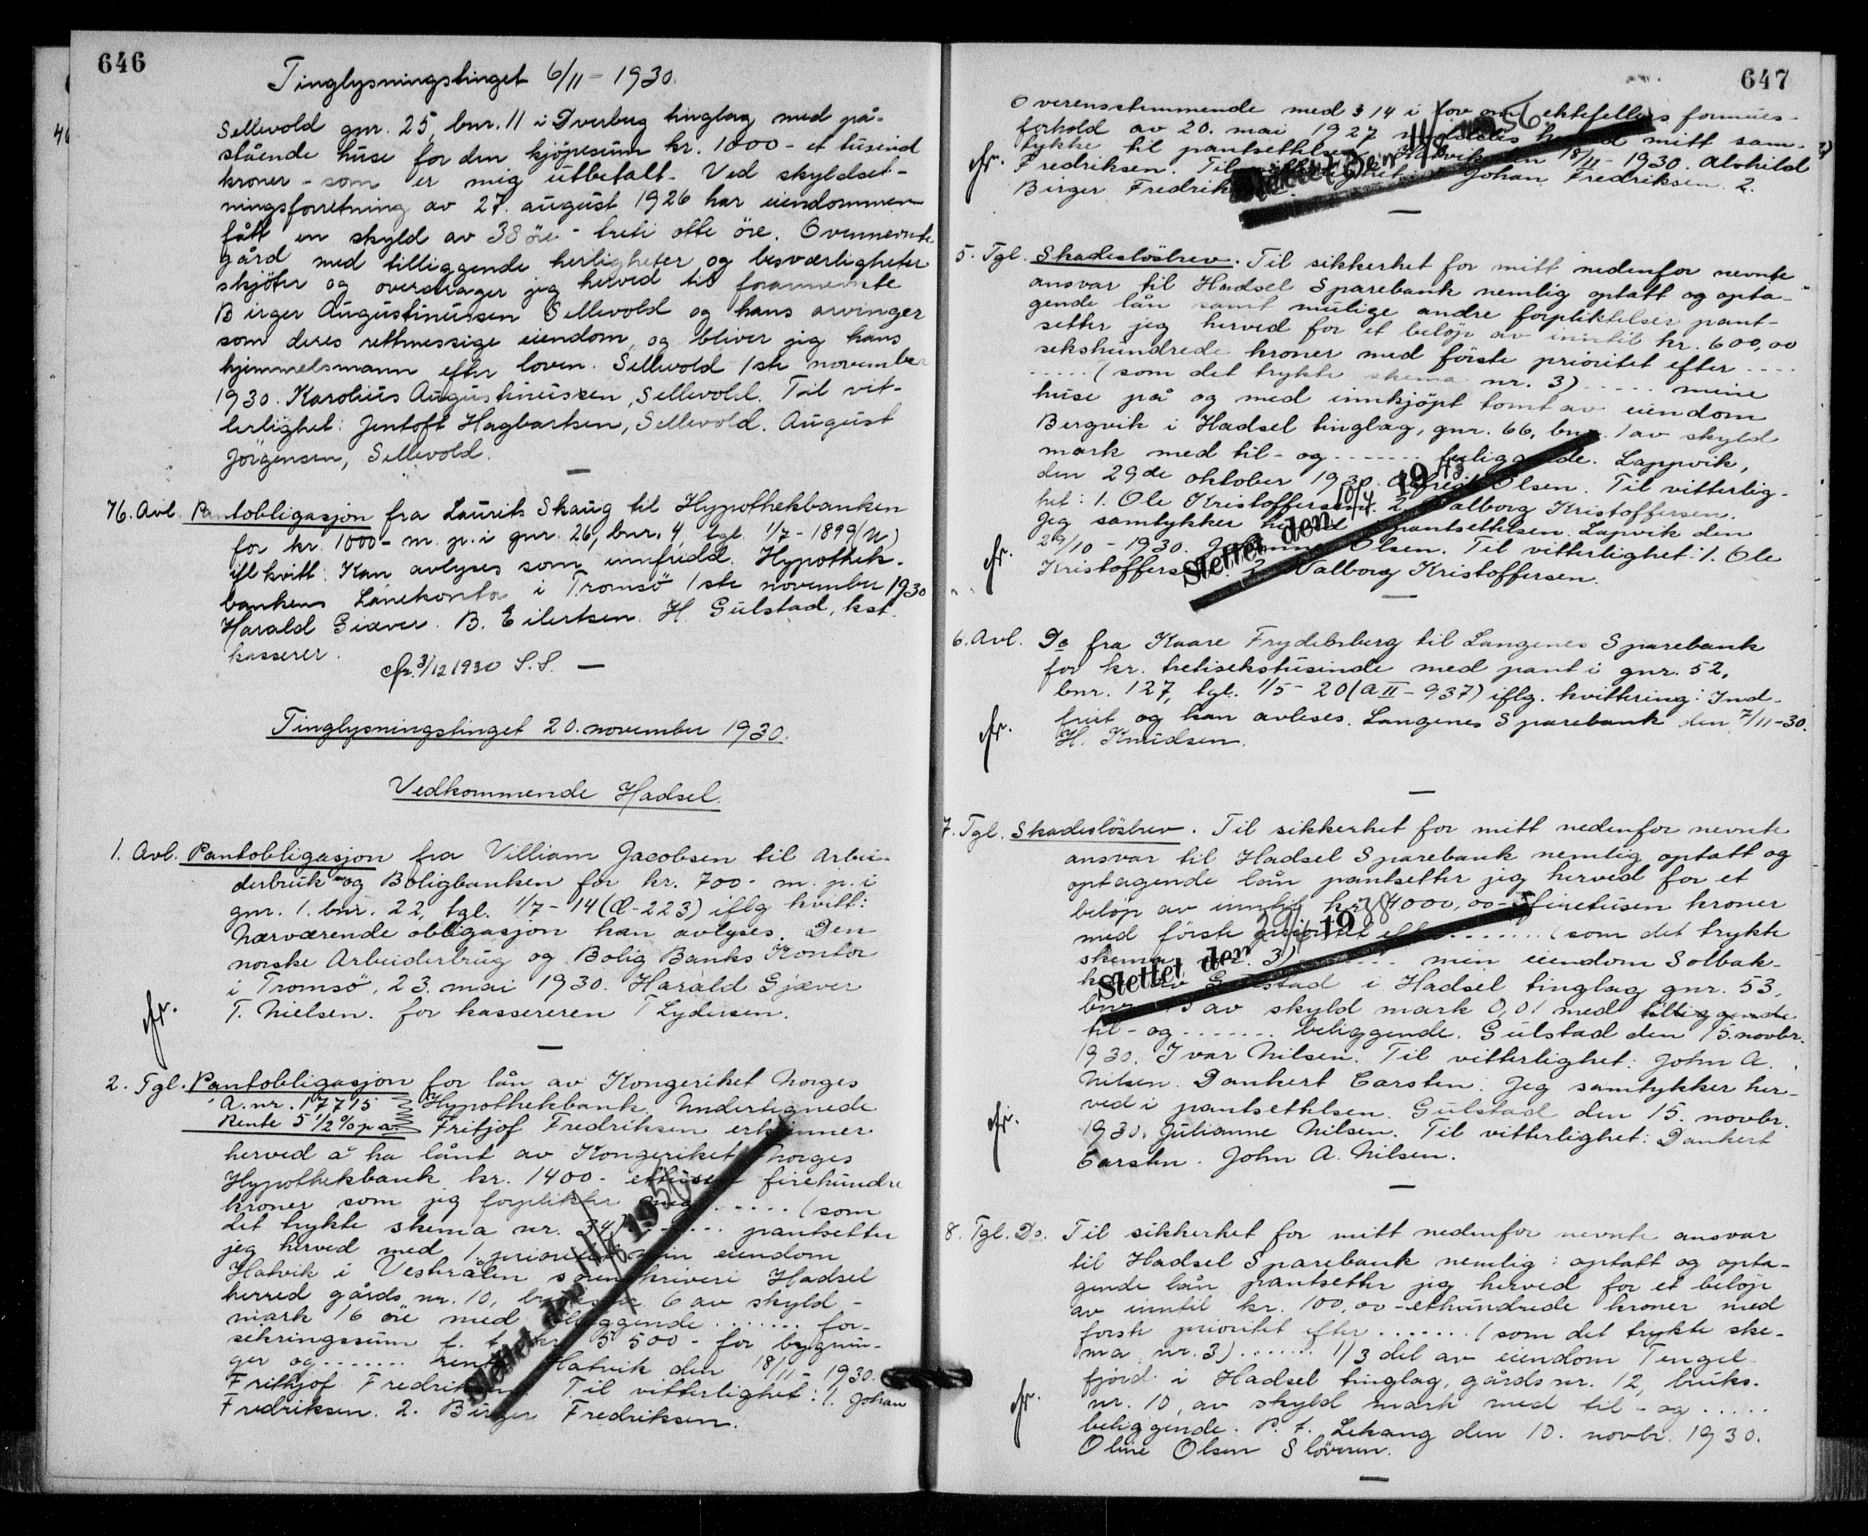 646
Tinglysningstinget 6/11 - 1930.
Sellevold gnr. 25, bnr. 11 i Dverberg tinglag med på-
stående huse for den kjøpesum kr. 1000 - et tusind
kroner - som er mig utbetalt. Ved skyldset-
ningsforretning av 27. august 1926 har eiendommen
fått en skyld av 38 øre - treti otte øre. Ovennevnte
gård med tilliggende herligheter og besværligheter
skjøter og overdrager jeg herved til forannevnte
Birger Augustinussen Sellevold og hans arvinger
som deres rettmessige eiendom, og bliver jeg hans
hjemmelsmann efter loven. Sellevold 1ste november
1930. Karolius Augustinussen, Sellevold. Til vit-
terlighet: Jentoft Hagbartsen, Sellevold. August
Jørgensen, Sellevold.
76. Avl. Pantobligasjon fra Laurits Skaug til Hypothekbanken
for kr. 1000 - m. p. i gnr. 26, bnr. 4, tgl. 1/7 - 1899 (N)
ifl kvitt: Kan avlyses som innfridd. Hypothek-
bankens Lånekontor i Tromsö 1ste november 1930
Harald Giæver. B. Eilertsen. H. Gulstad, kst.
kasserer.
efr. 3/12 1930 S.S.
Tinglysningstinget 20. november 1930.
Vedkommende Hadsel.
1. Avl. Pantobligasjon fra Villiam Jacobsen til Arbei-
derbruk og Boligbanken for kr. 700 - m. p. i
gnr. 1. bnr. 22, tgl. 1/7 - 14 (Æ - 223) iflg kvitt:
Nærværende obligasjon kan avlyses. Den
norske Arbeiderbrug og Bolig Banks Kontor
i Tromsö, 23. mai 1930. Harald Gjæver
T. Nielsen. for kassereren T Lydersen.
efr.
2. Tgl. Pantobligasjon for lån av Kongeriket Norges
A. nr. 17715 Hypothekbank. Undertegnede
Rente 5 1/2 % p a. Fritjof Fredriksen erkjenner
herved å ha lånt av Kongeriket Norges
Hypothekbank kr. 1400 - ettusen firehundre
kroner som jeg forplikter mig ...... (som
det trykte skema nr. 34) ...... pantsetter
jeg herved med 1. prioritet min eiendom
Hatvik i Vesterålen sorenskriveri Hadsel
herred gårds nr. 10, bruks nr. 6 av skyld -
mark 16 øre med tilliggende ....... for-
sekringssum f. t. kr. 5500 - for bygnin-
ger og ....... rente. Hatvik den 18/11 - 1930.
Frithjof Fredriksen. Til vitterlighet: 1. Johan
Fredriksen. 2. Birger Fredriksen.
Slettet den 11/8 1950
647
Overensstemmende med § 14 i lov om ektefellers formues-
forhold av 20. mai 1927 meddeles herved mitt sam-
tykke til pantsettelsen. Hatvik den 18/11 - 1930. Alshild
efr. Fredriksen. Til vitterlighet: 1. Johan Fredriksen. 2.
Birger Fredriksen.
Slettet den 11/8 1950
5. Tgl. Skadesløsbrev. Til sikkerhet for mitt nedenfor nevnte
ansvar til Hadsel Sparebank nemlig optatt og opta-
gende lån samt mulige andre forpliktelser pant-
setter jeg herved for et beløp av inntil kr. 600,00
sekshundrede kroner med første prioritet efter ....
..... (som det trykte skema nr. 3) ..... mine
huse på og med innkjøpt tomt av eiendom
Bergvik i Hadsel tinglag, gnr. 66, bnr. 1 av skyld
mark med til - og ....... beliggende. Lappvik,
den 29de oktober 1930. Alfred Olsen. Til vitterlig-
het: 1. Ole Kristoffersen. 2. Valborg Kristoffersen.
Jeg samtykker herved i pantsettelsen. Lapvik den
29/10 - 1930. Olsen. Til vitterlighet: 1. Ole
efr. Kristoffersen. 2. Valborg Kristoffersen.
Slettet den 10/4 1943
6. Avl. Do fra Kaare Frydebsberg til Langenes Sparebank
for kr. tretisekstusinde med pant i gnr. 52,
bnr. 127, tgl. 1/5 - 20 (A II - 937) iflg. kvittring: Ind-
friet og kan avleses. Langenes Sparebank den 7/11 - 30.
efr. H. Knudsen.
7. Tgl. Skadesløsbrev. Til sikkerhet for mitt nedenfor nevnte
ansvar til Hadsel Sparebank nemlig optatt og
optagende lån pantsetter jeg herved for et
beløp av inntil kr. 4000,00 - firetusen kroner
med første prioritet efter ....... (som det trykte
skema nr. 3) ....... min eiendom Solbak-
ken av Gulstad i Hadsel tinglag gnr. 53,
bnr. av skyld mark 0,01 med tilliggende
til - og ....... beliggende. Gulstad den 15. novbr.
1930. Ivar Nilsen. Til vitterlighet: John A.
Nilsen. Dankert Carsten. Jeg samtykker her-
ved i pantsettelsen. Gulstad den 15. novbr.
efr. 1930. Julianne Nilsen. Til vitterlighet: Dankert
Carsten. John A. Nilsen.
Slettet den 1938
8. Tgl. Do. Til sikkerhet for mitt nedenfor nevnte ansvar
til Hadsel Sparebank nemlig: optatt og opta-
gende lån pantsetter jeg herved for et beløp
av inntil kr. 100,00 - ethundrede kroner med
første prioritet efter ....... (som det trykte ske-
ma nr. 3) ....... 1/3 del av eiendom Tengel-
fjord i Hadsel tinglag, gårds nr. 12, bruks-
efr. nr. 10, av skyld mark med til - og .....
beliggende. P. t. Lekang den 10. novbr. 1930.
Oline Olsen Sløveren.